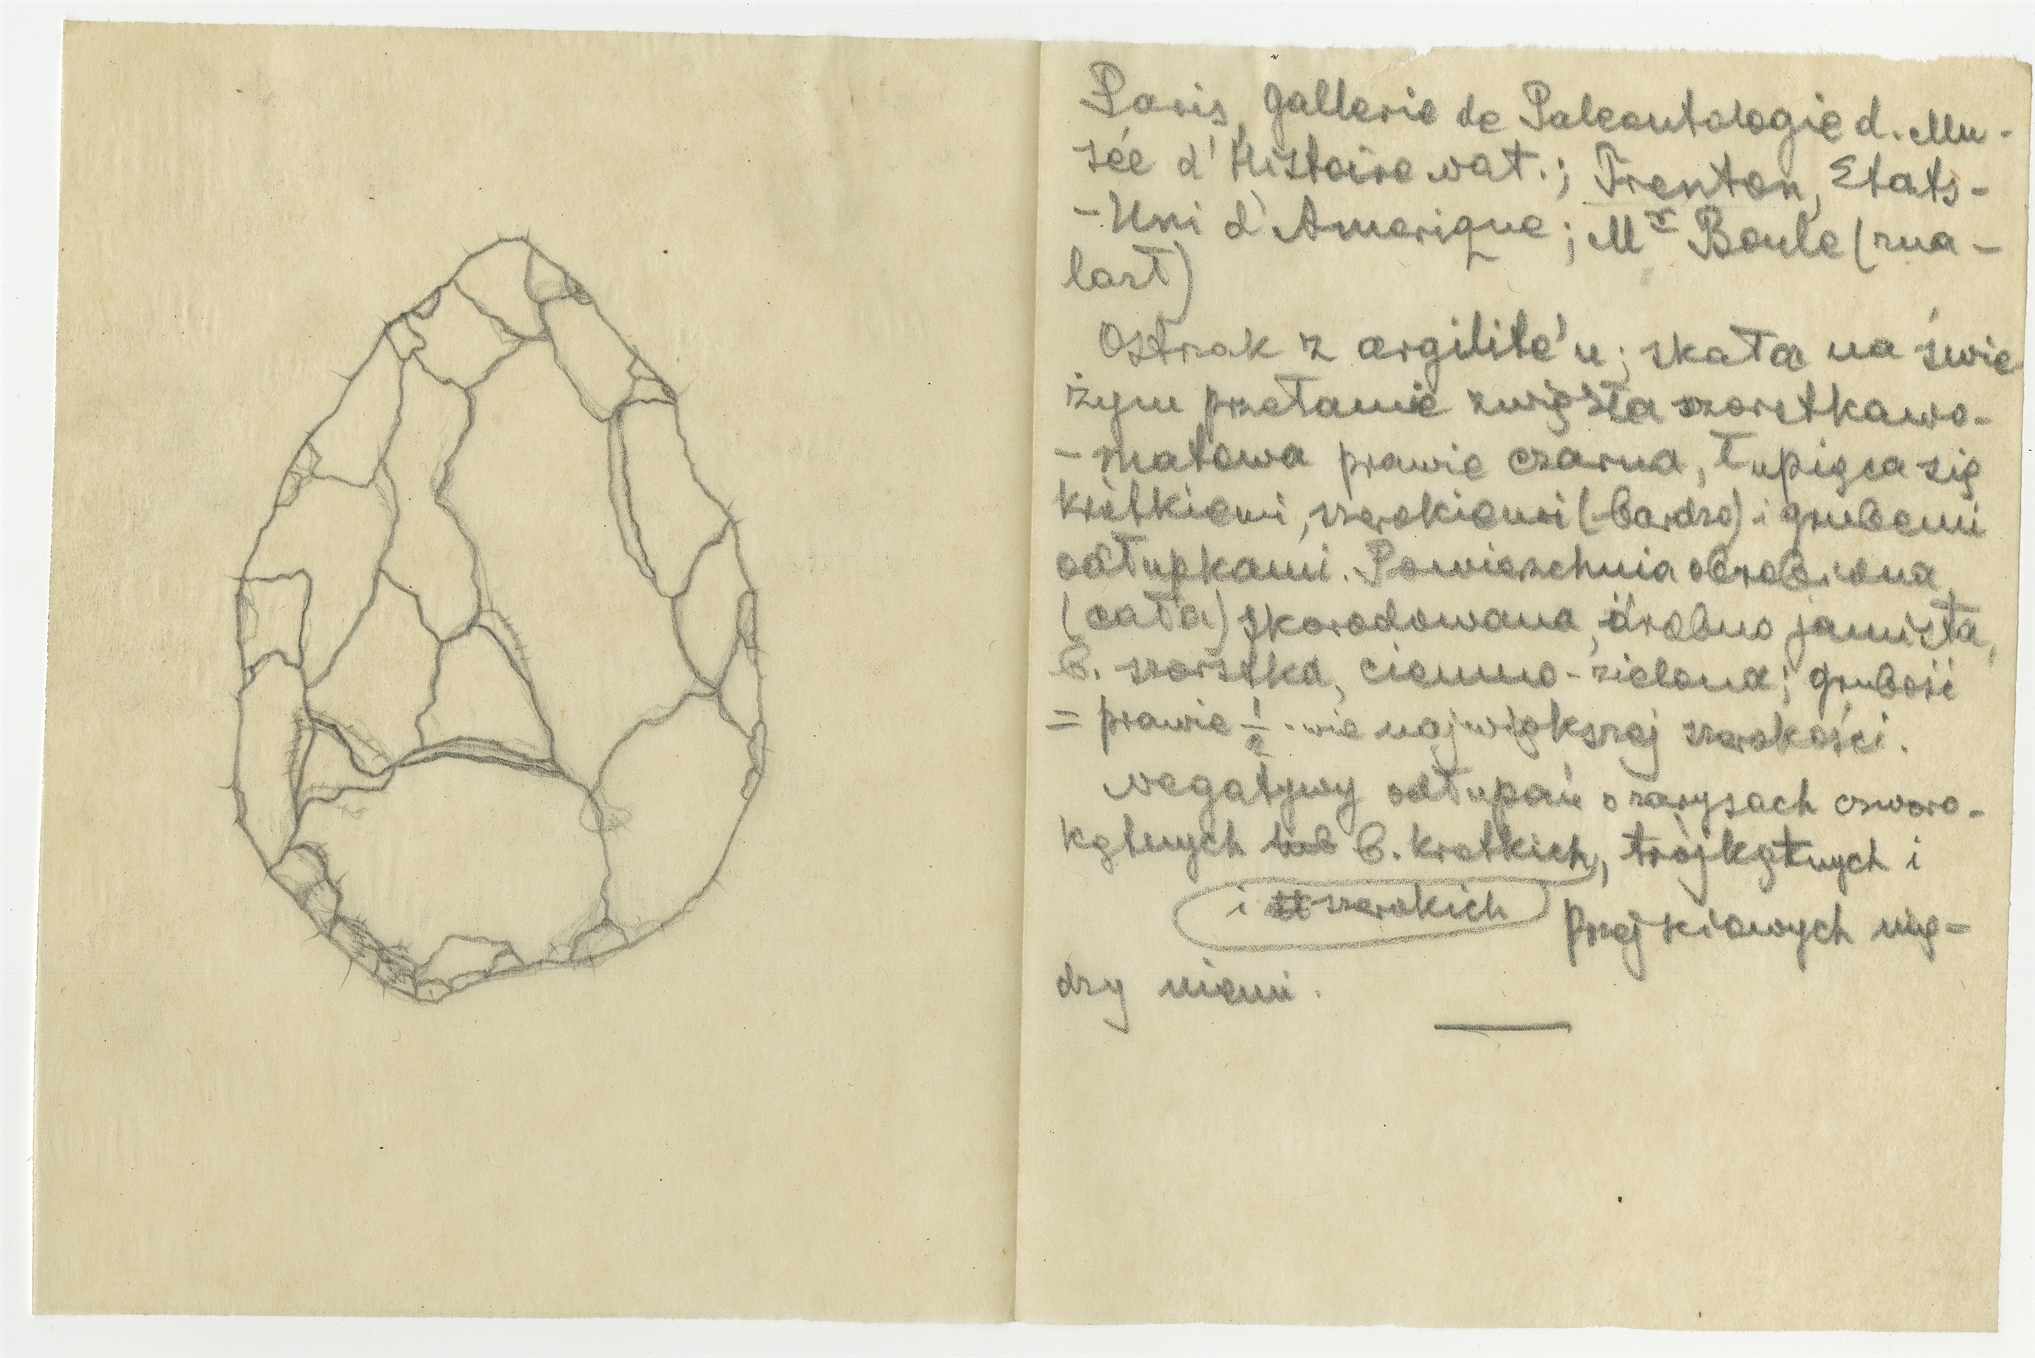 Paris, gallerie de Paleontologie d. Mu-
sée d'Histoire nat.; Trenton, Etats-
-Uni d'Amerique; Mr Boule (zna-
lazł)
Ostrzak z argilite'u; skała na świe
żym przełamie zwięzła szorstkawo-
-matowa prawie czarna, łupiąca się
krótkiemi, szerokiemi (bardzo) i grubemi
odłupkami. Powierzchnia obrobiona
(cała) skorodowana, drobno jamista,
b. szorstka, ciemno-zielona; grubość
= prawie 1/2-wie największej szerokości.
Negatywy odłupań o zarysach czworo-
kątnych b. krotkich, trójkątnych i
i szerokich przejściowych mię-
dzy niemi.